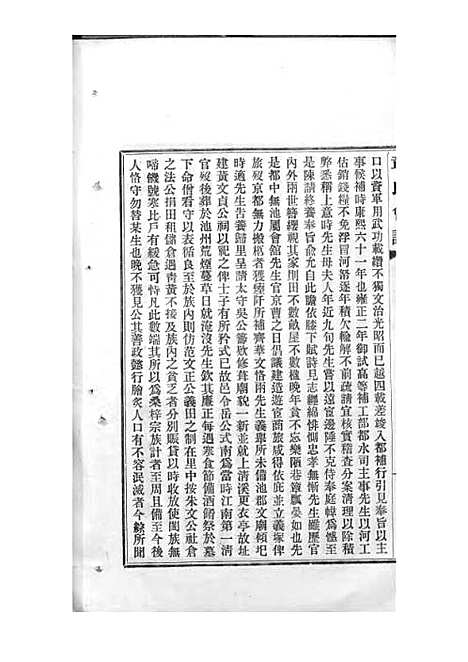 口以資軍用武功載纘不獨文治光昭而已越四載差竣入都補行引見奉旨以主
事候補時康熙六十一年也雍正二年御試高等補工部都水司主事先生以河工
估銷錢糧不免浮冒河帑逐年積欠輸解不前疏請宜核實稽查分案清理以除積
弊悉稱上意時先生母夫人年近九旬先生嘗以遠宦邊陲不克侍奉庭幃為憾至
是陳請終養奉旨俞允自此瞻依膝下賦詩見志纏綿悱惻忠孝無慚先生雖歷官
內外兩世簪纓視其家則田不數畝屋不數楹晚年貧不忘樂陋巷簞瓢晏如也先
是都中無池屬會舘先生官京曹之日倡議建造遊宦商旅咸得依庇並立義塚俾
旅歿京都無力搬柩者獲瘞阡所補齊華文恪兩先生義舉所未備池郡文廟傾圮
時適先生告養歸里呈請太守吳公籌欵修葺廟貌一新並就上清溪更衣亭故址
建黃文貞公祠以祀之俾士子有所矜式已故邑令岳公式南為當時江南第一清
官歿後葬于池州荒煙蔓草日就淹沒先生欽其廉正每遇寒食節備酒餚祭於墓
下命爾曹守以表循良至於族內則仿范文正公義田和朱文公社倉
之法公捐田租儲倉遇青黃不接及族內之貧乏者分別賑貸以時收放使閤族無
啼饑號寒比戶有緩急可恃凡此數端其所以為桑梓宗族計者至周且備至今後
人恪守勿替某生也晚不獲見公其善政懿行膾炙人口有不容泯滅者今綜所聞